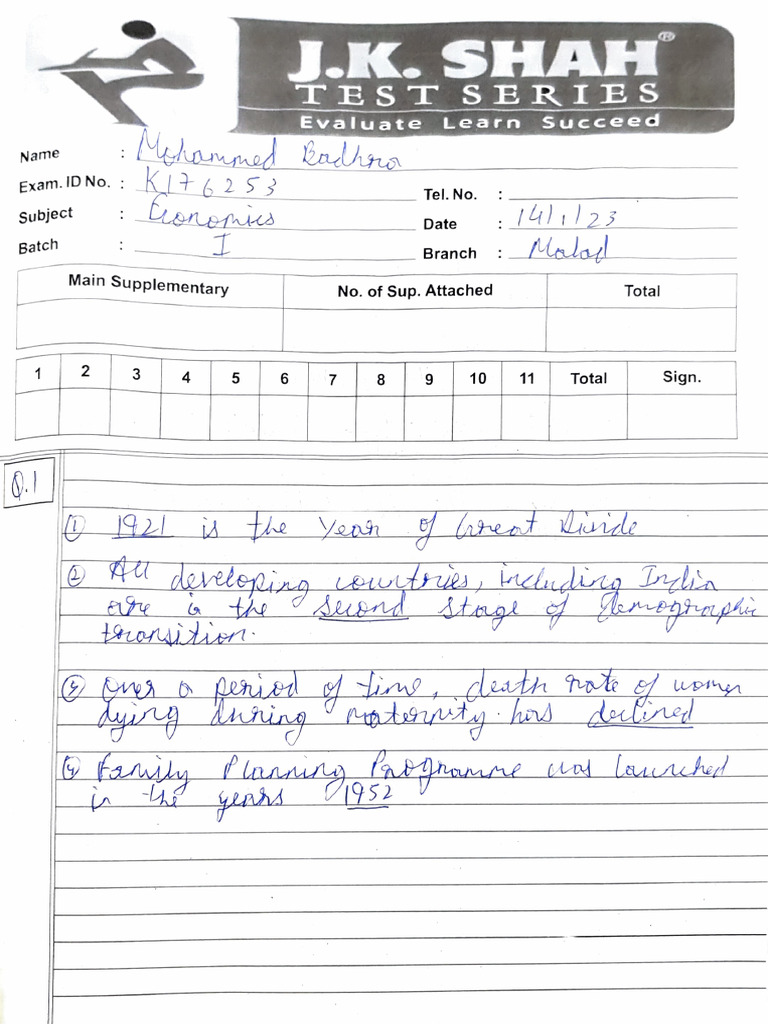 J.K. SHAH®
TEST SERIES
Evaluate Learn Succeed
Name : Mohammed Badhra
Exam. ID No. : K176253
Tel. No. :
Subject : Economics
Date : 14/1/23
Batch : I
Branch : Malad
Main Supplementary No. of Sup. Attached Total
1 2 3 4 5 6 7 8 9 10 11 Total Sign.
Q.1
① 1921 is the Year of Great Divide
② All developing countries, including India
are in the second stage of demographic
transition.
③ Over a period of time, death rate of women
dying during maternity has declined
④ Family Planning Programme was launched
in the years 1952